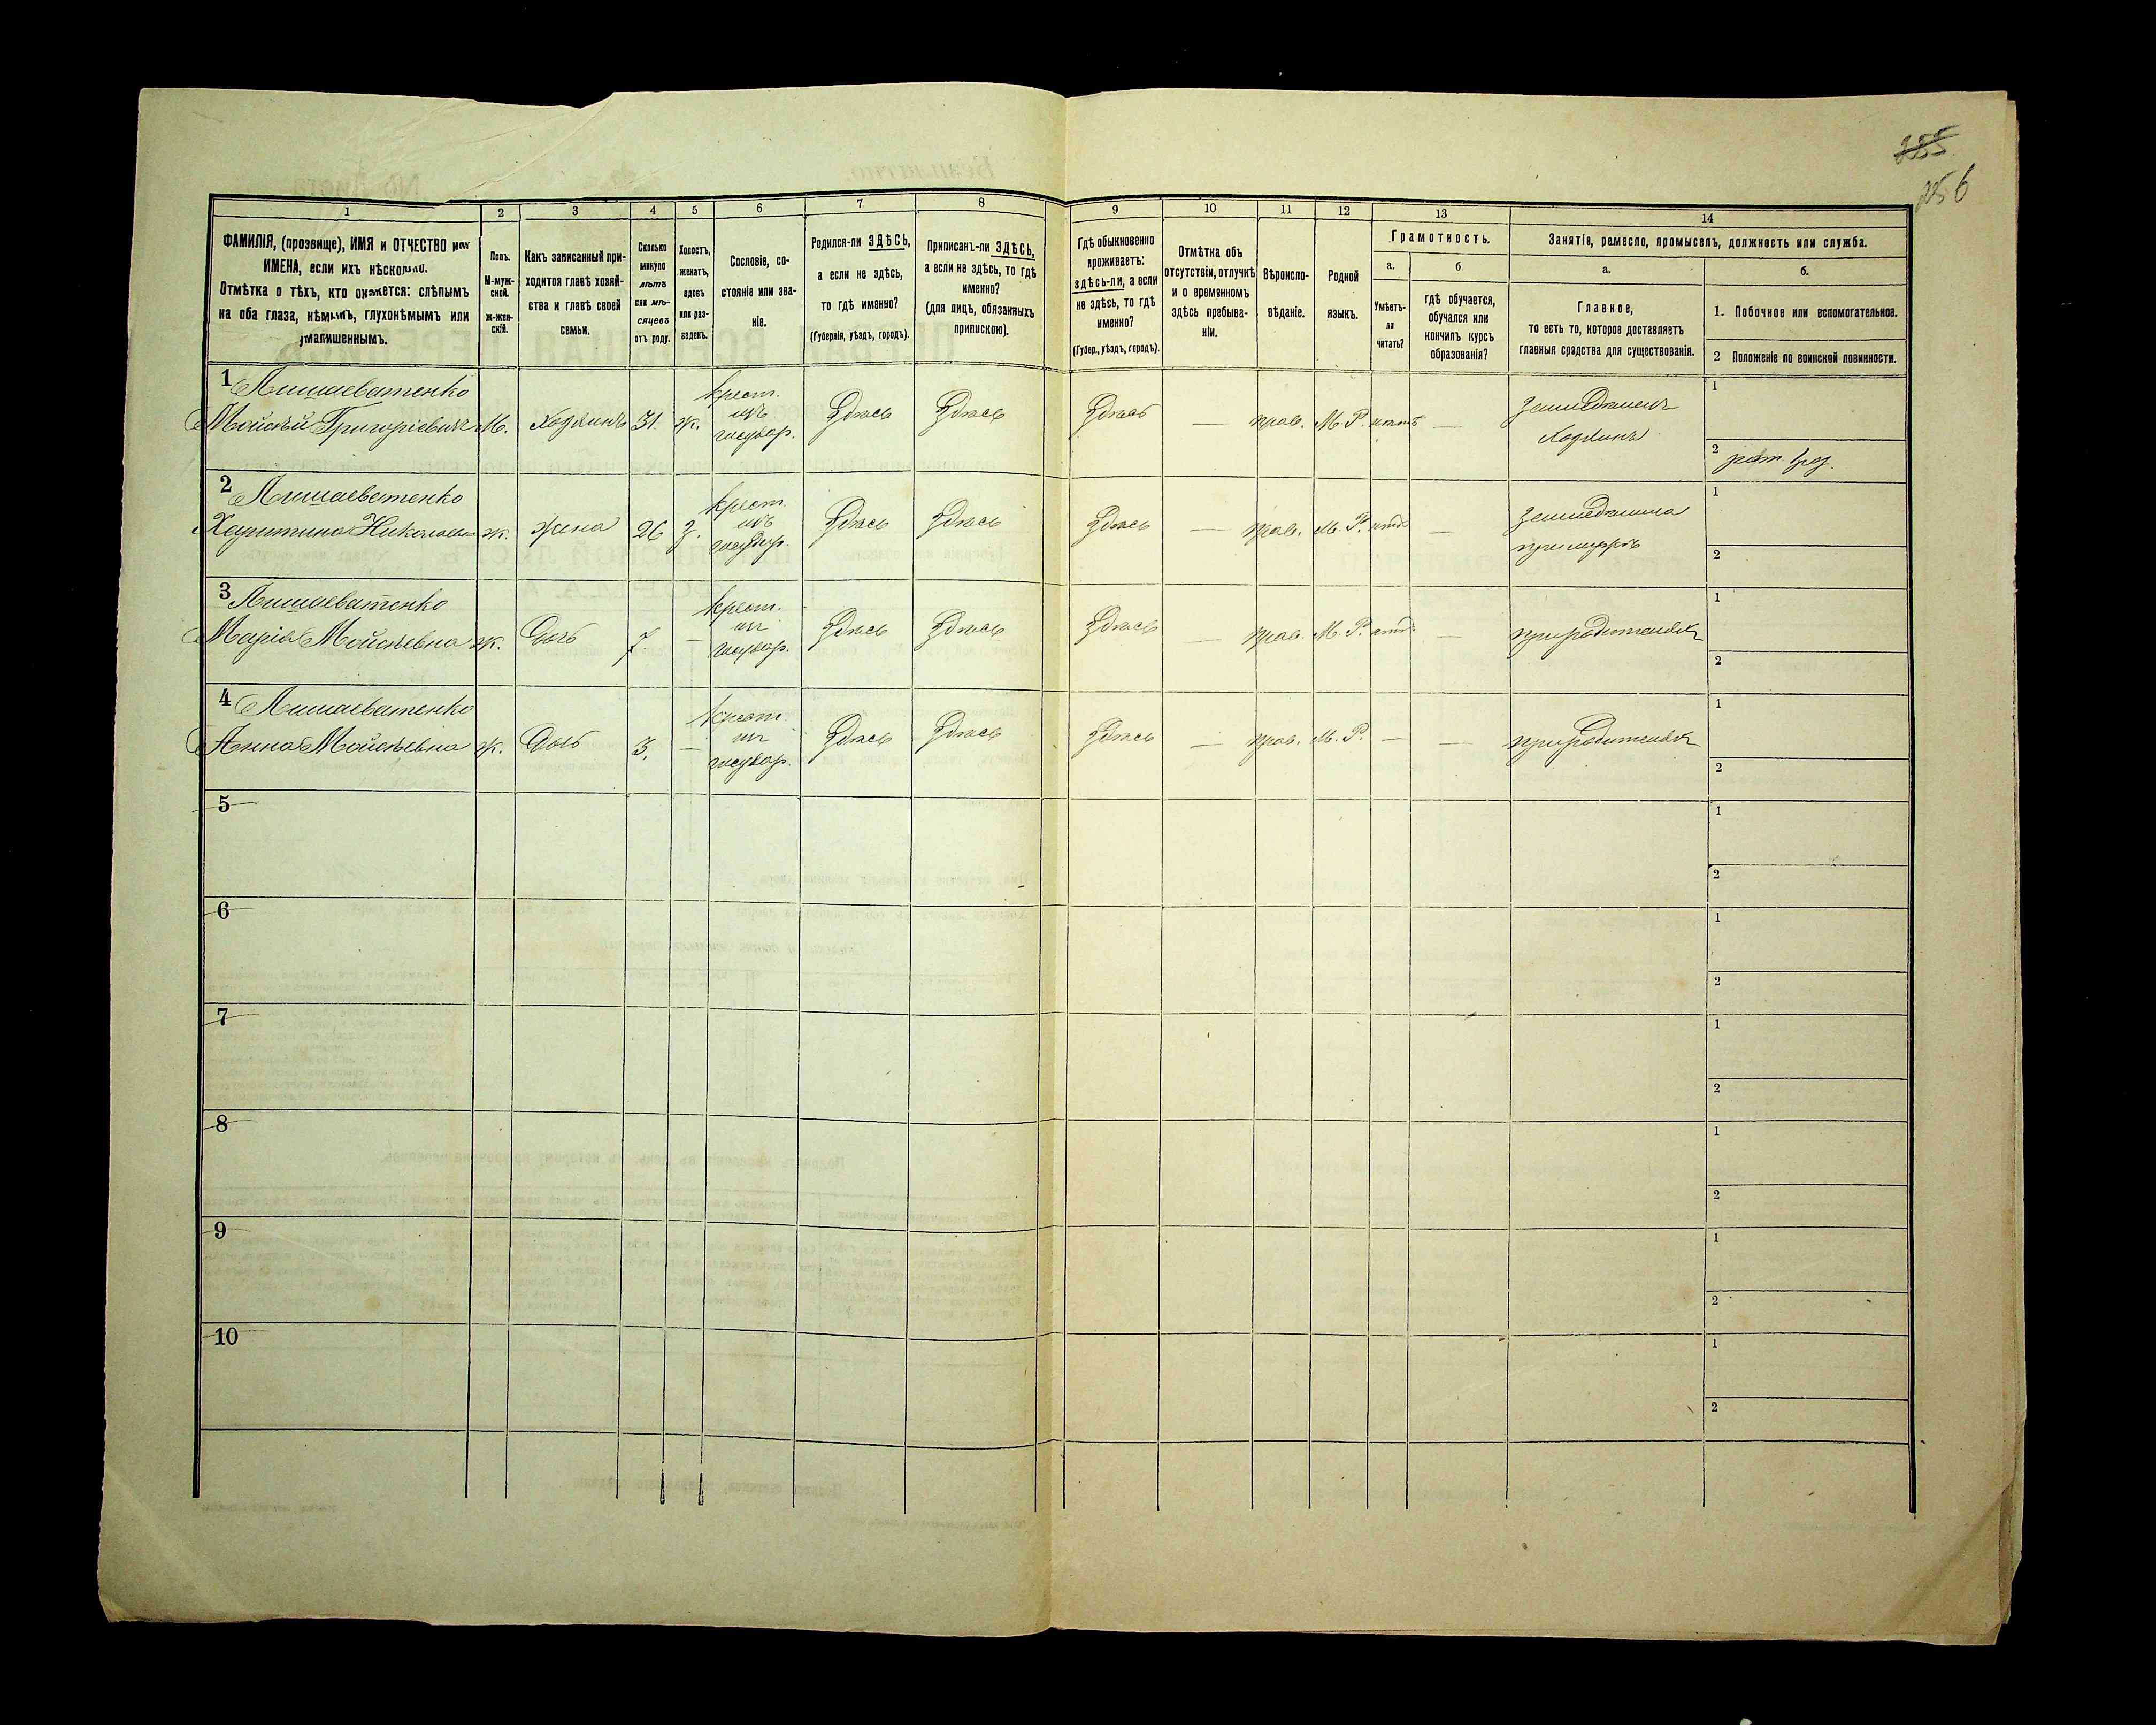 255
256
1
2
3
4
5
6
7
8
9
10
11
12
13
14
ФАМИЛІЯ, (прозвище), ИМЯ и ОТЧЕСТВО или
ИМЕНА, если ихъ нѣсколько.
Отмѣтка о тѣхъ, кто окажется: слѣпымъ
на оба глаза, нѣмымъ, глухонѣмымъ или
умалишеннымъ.
Полъ.
М-муж-
ской.
ж-жен-
скій.
Какъ записанный при-
ходится главѣ хозяй-
ства и главѣ своей
семьи.
Сколько
минуло
лѣтъ
или мѣ-
сяцевъ
отъ роду.
Холостъ,
женатъ,
вдовъ
или раз-
веденъ.
Сословіе, со-
стояніе или зва-
ніе.
Родился-ли ЗДѢСЬ,
а если не здѣсь,
то гдѣ именно?
(Губернія, уѣздъ, городъ).
Приписанъ-ли ЗДѢСЬ,
а если не здѣсь, то гдѣ
именно?
(для лицъ, обязанныхъ
припискою).
Гдѣ обыкновенно
проживаетъ:
здѣсь-ли, а если
не здѣсь, то гдѣ
именно?
(Губер., уѣздъ, городъ).
Отмѣтка объ
отсутствіи, отлучкѣ
и о временномъ
здѣсь пребыва-
ніи.
Вѣроиспо-
вѣданіе.
Родной
языкъ.
Грамотность.
а.
Умѣетъ-
ли
читать?
б
гдѣ обучается,
обучался или
кончилъ курсъ
образованія?
Занятіе, ремесло, промыселъ, должность или служба.
а.
Главное,
то есть то, которое доставляетъ
главныя средства для существованія.
б.
1. Побочное или вспомогательное.
2 Положеніе по воинской повинности.
1
Мойсѣй Григоріевичъ М. Хозяинъ 31 ж. крест. изъ государ. Здѣсь Здѣсь Здѣсь — прав. М. Р. нѣтъ — Земледѣлецъ Хозяинъ
1
2 рат. 1 раз.
2
Харитина Николаевна ж. жена 26 з. крест. изъ государ. Здѣсь Здѣсь Здѣсь — прав. М. Р. нѣтъ —
1
2
3
Марія Мойсѣевна ж. дочь 7 — крест. из государ. Здѣсь Здѣсь Здѣсь — прав. М. Р. нѣтъ — при родителяхъ
1
2
4
Анна Мойсѣевна ж. дочь 3. — крест. из государ. Здѣсь Здѣсь Здѣсь — прав. М. Р. — — при родителяхъ
1
2
5
1
2
6
1
2
7
1
2
8
1
2
9
1
2
10
1
2